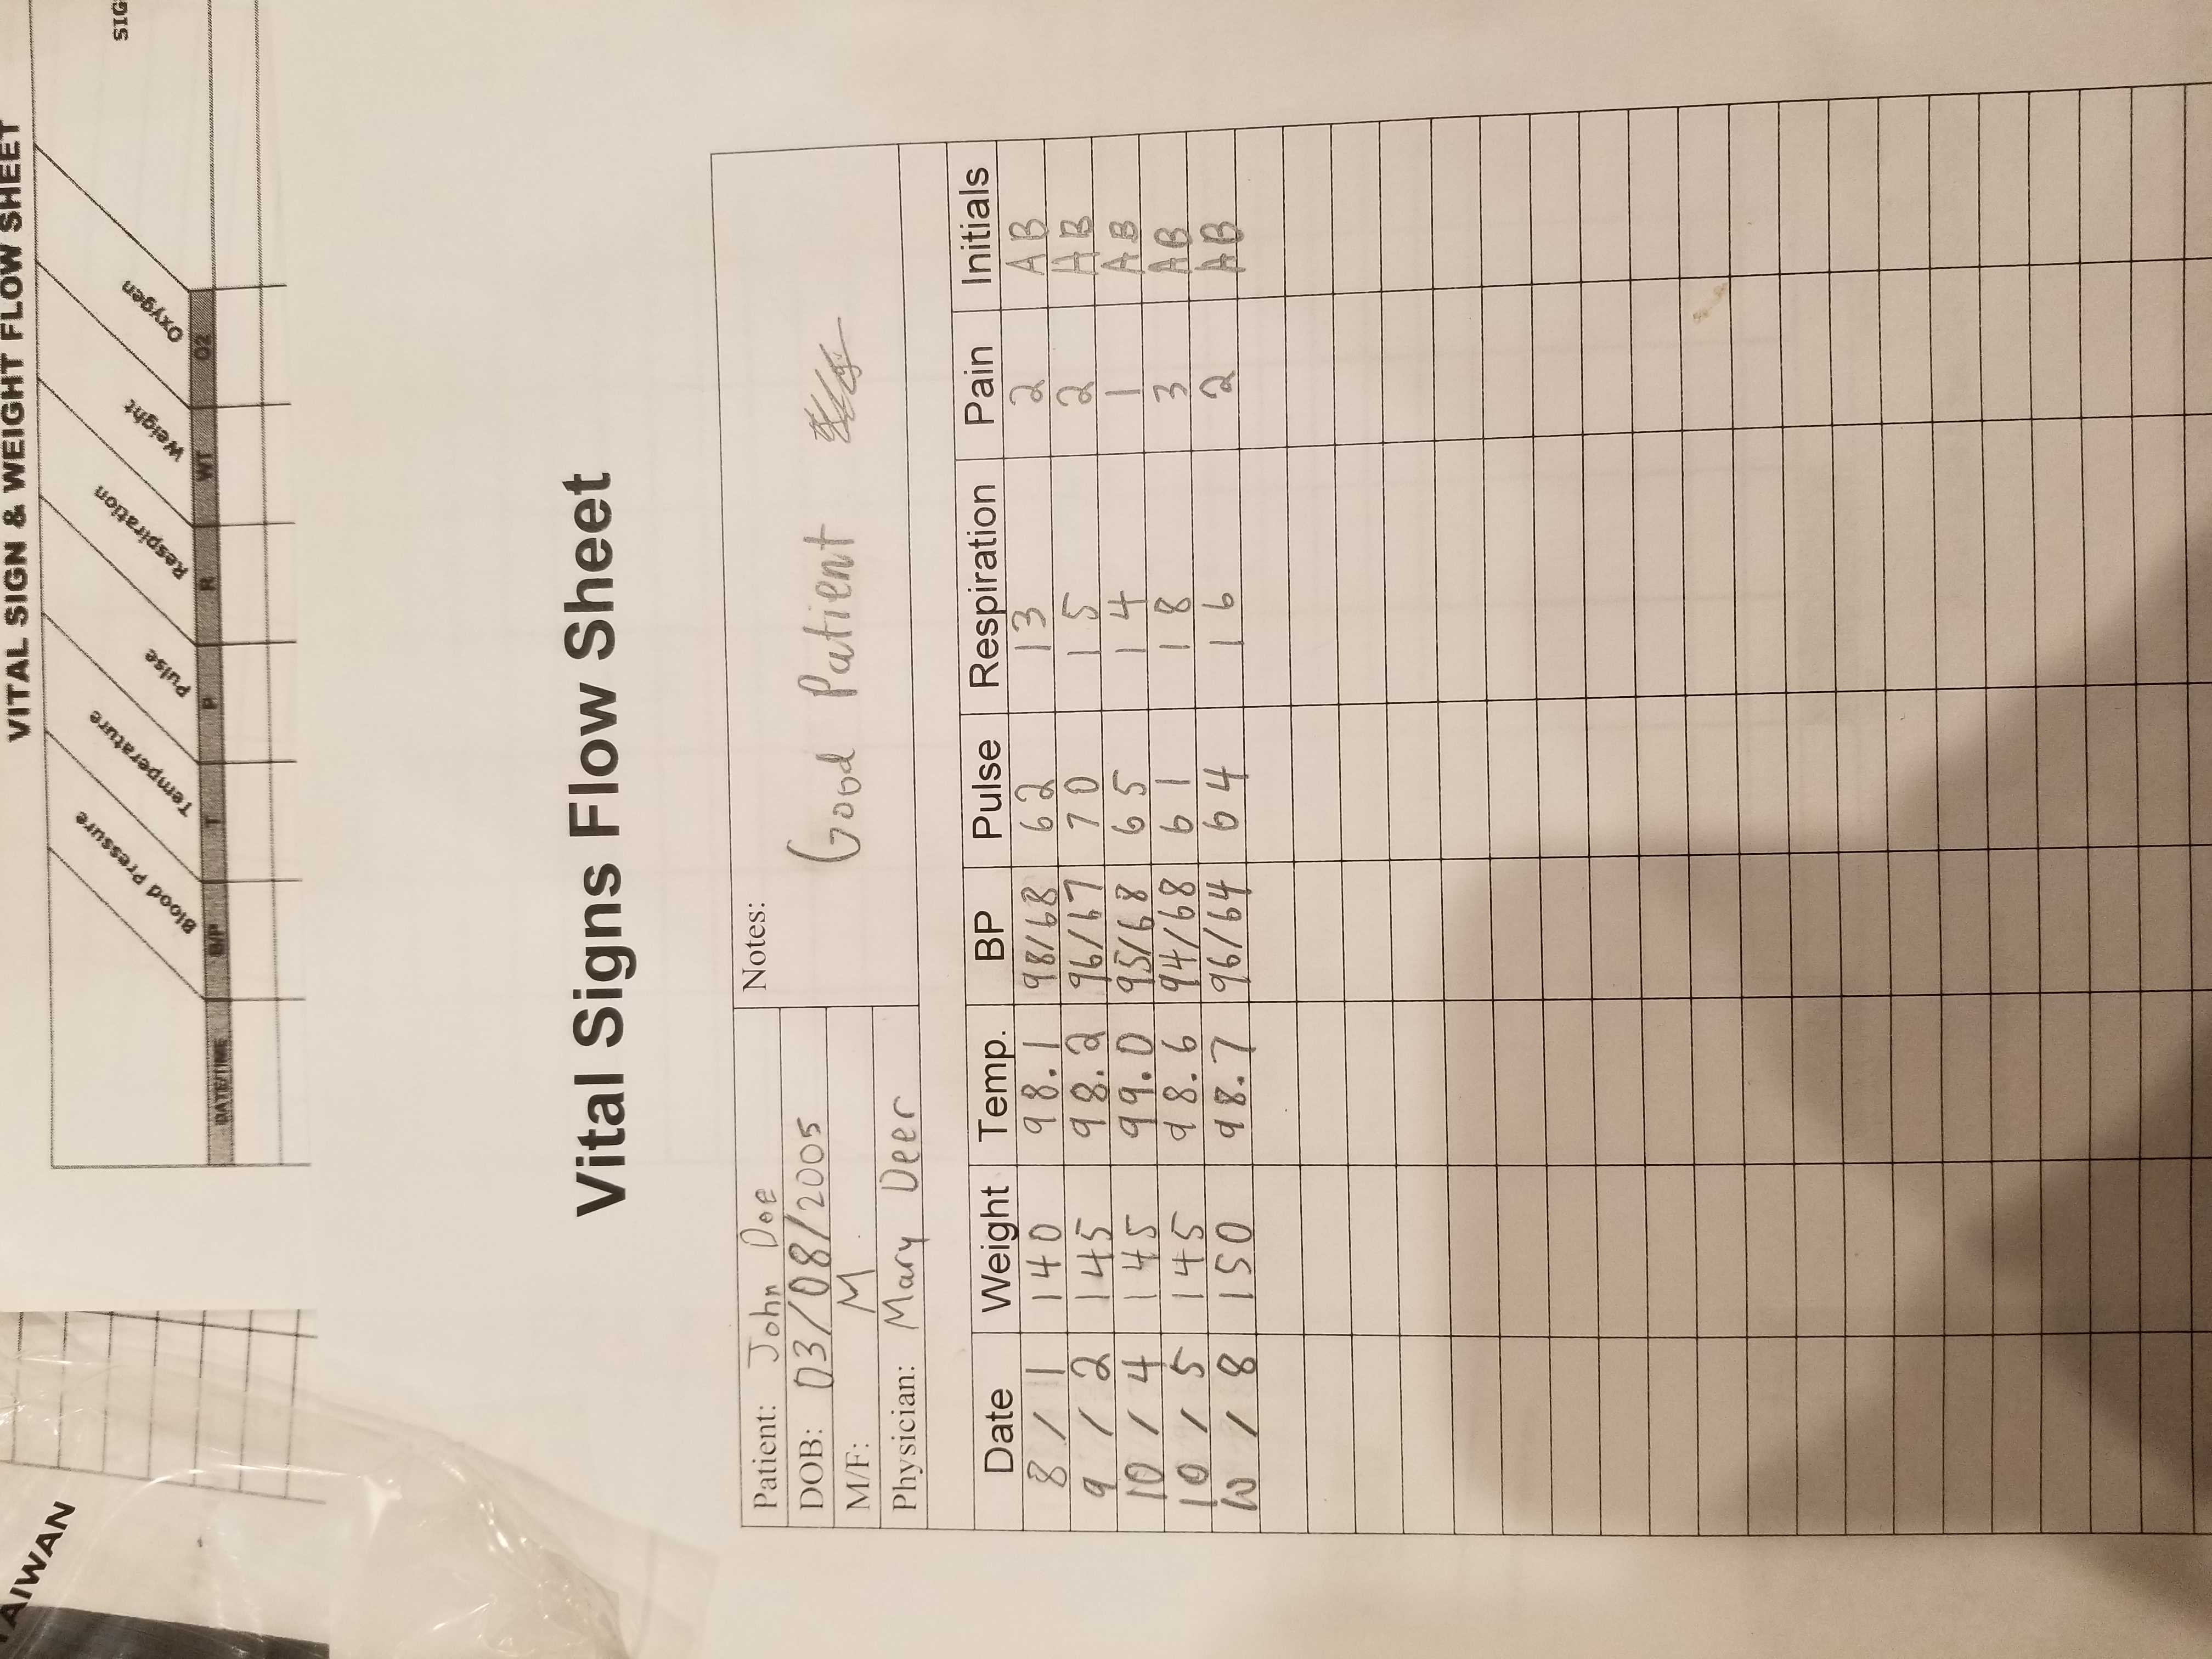 TAIWAN
VITAL SIGN & WEIGHT FLOW SHEET
Blood Pressure Temperature Pulse Respiration Weight Oxygen
DATE/TIME B/P T P R WT O2
Vital Signs Flow Sheet
Patient: John Doe
DOB: 03/08/2005
M/F: M
Physician: Mary Deer
Notes:
Good Patient
Date Weight Temp. BP Pulse Respiration Pain Initials
8 / 1 140 98.1 98/68 62 13 2 AB
9 / 2 145 98.2 96/67 70 15 2 AB
10 / 4 145 99.0 95/68 65 14 1 AB
10 / 5 145 98.6 94/68 61 18 3 AB
10 / 8 150 98.7 96/64 64 16 2 AB